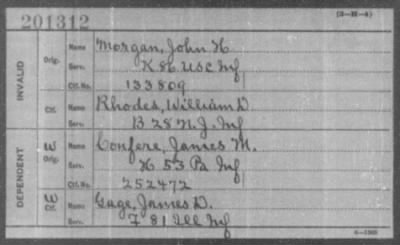 201312
(3-H-4)
INVALID
Orig. Name Morgan, John H
Serv. K H USC Inf
Ctf. No. 133809
Ctf. Name Rhodes, William D.
Serv. B 28 N.J. Inf
DEPENDENT
W Orig. Name Confere, James M.
Serv. H 53 Pa Inf
Ctf. No. 252472
W Ctf. Name Gage, James D.
Serv. F 81 Ill Inf